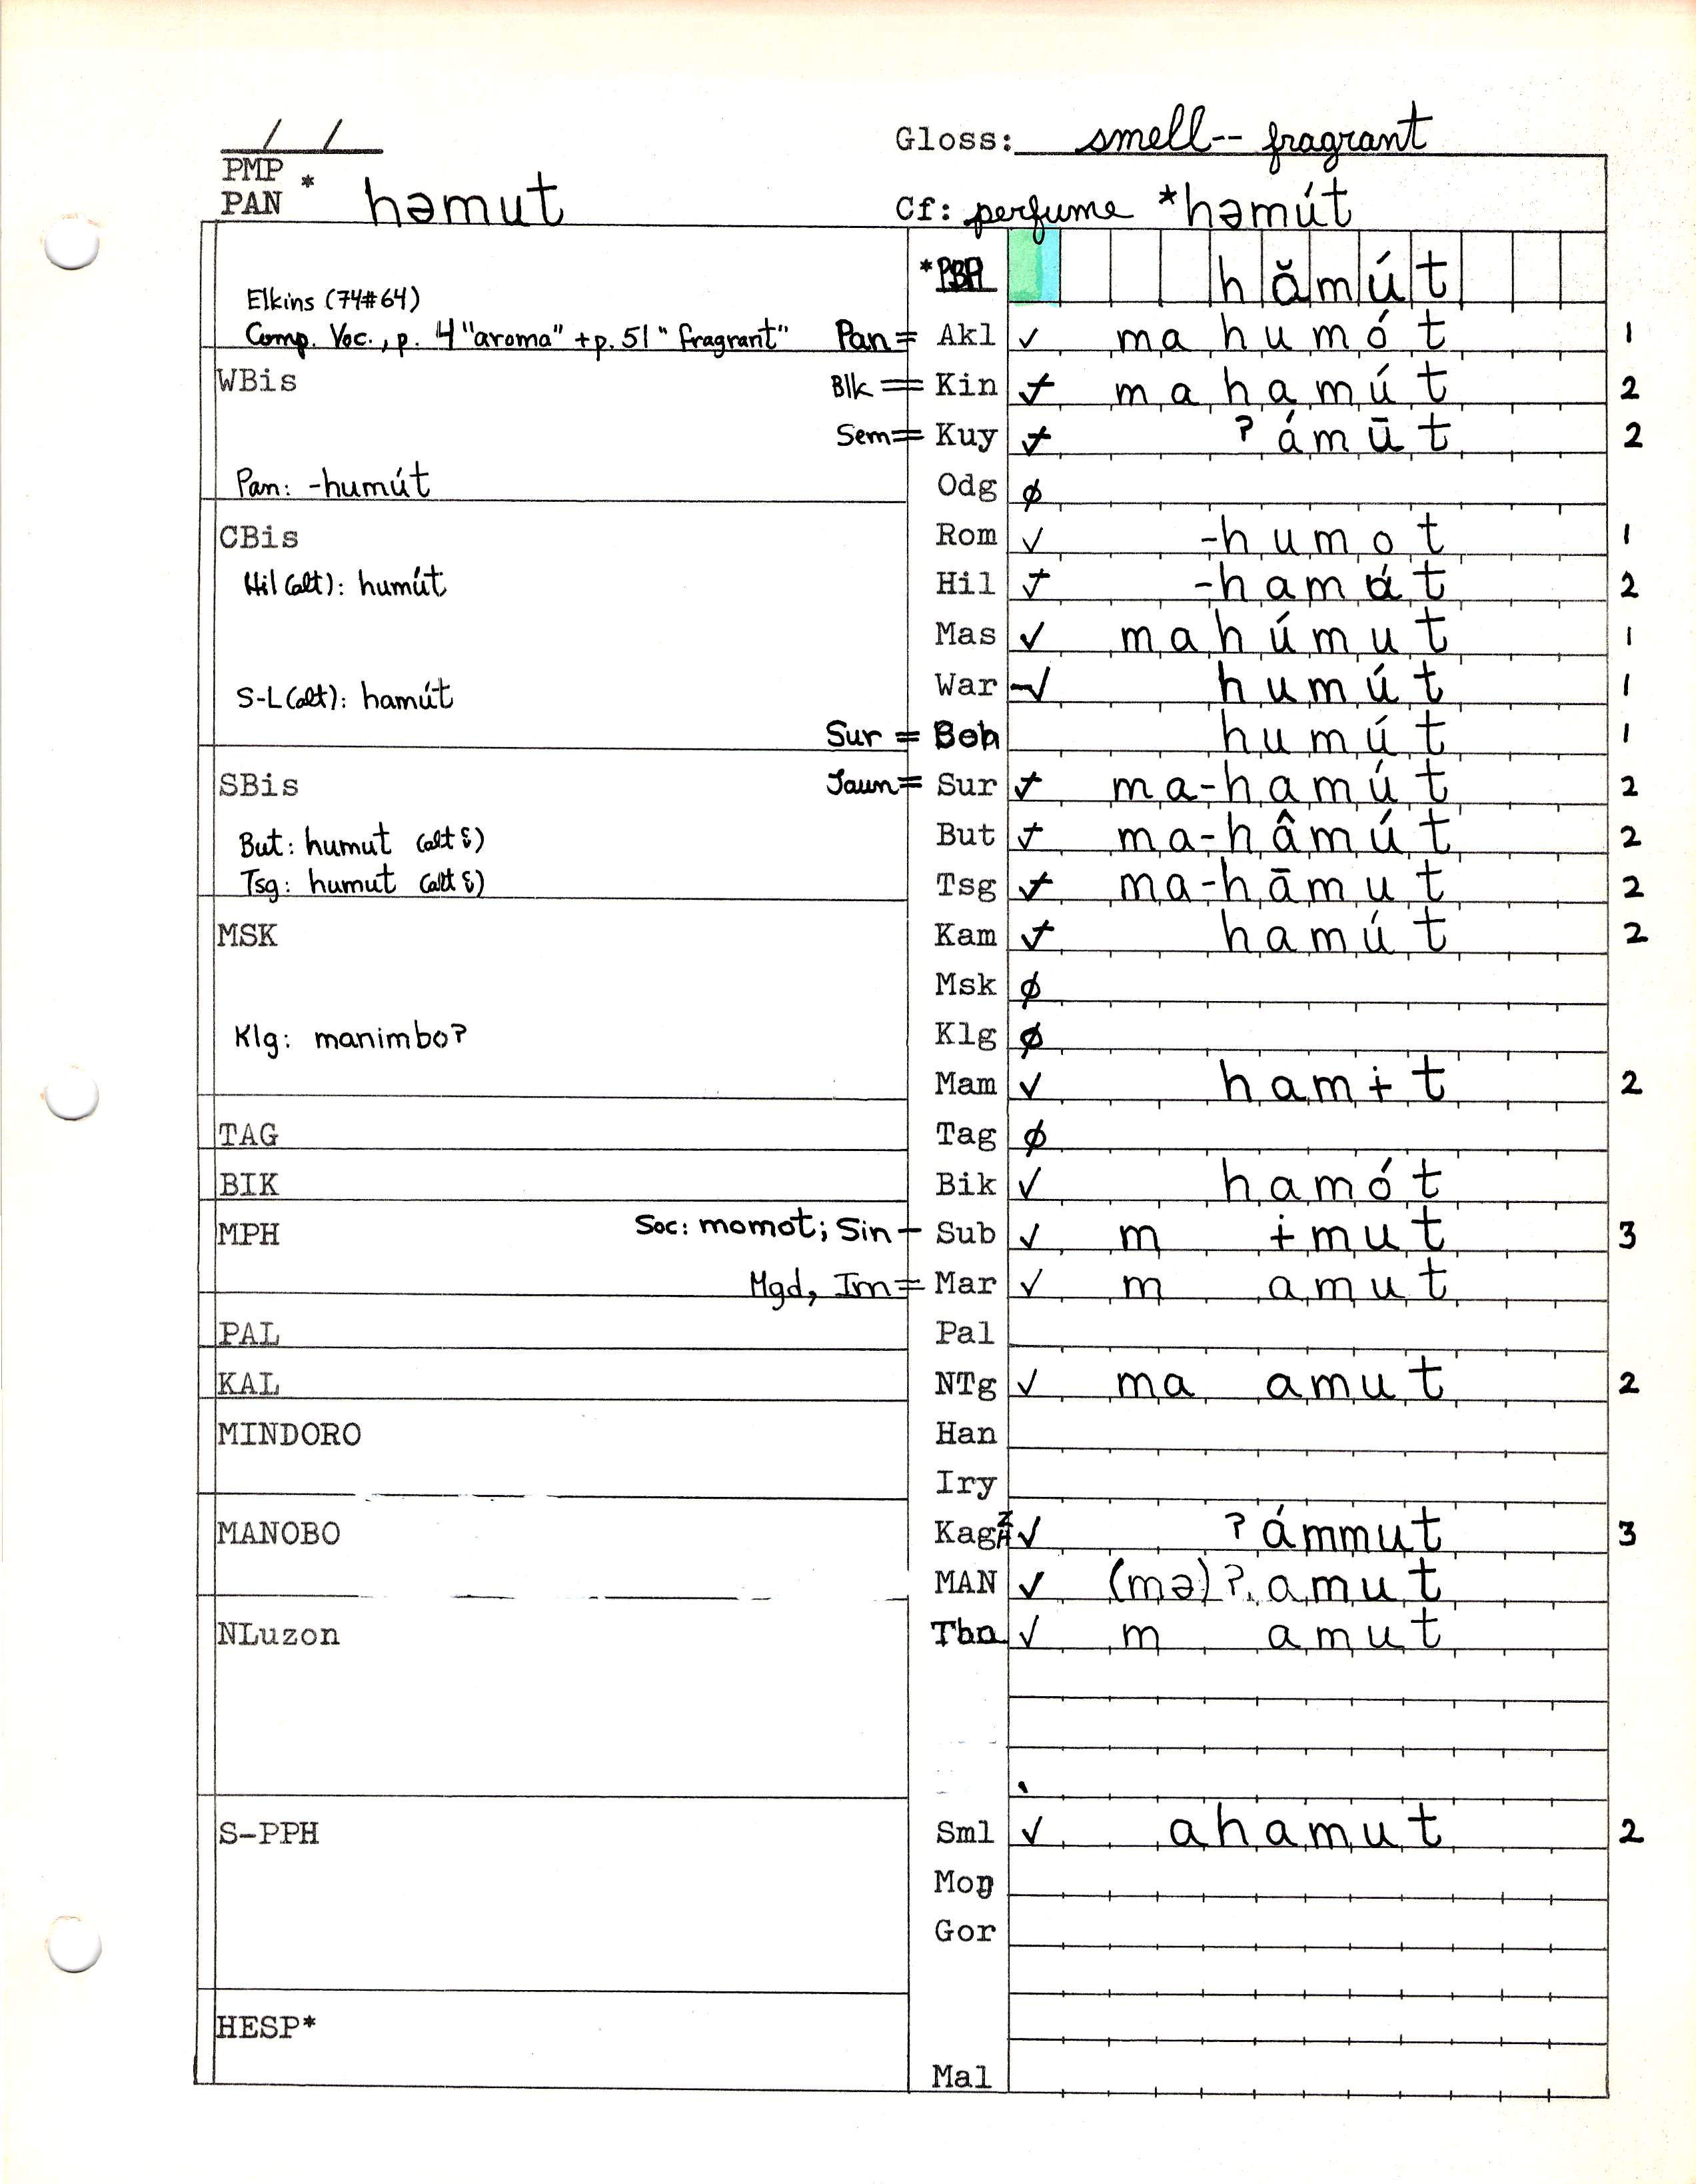 / /
Gloss: smell-- fragrant
PMP
PAN * həmut
Cf: perfume *həmút
hămút
Elkins (74#64)
Comp. Voc., p. 4 "aroma" + p. 51 "fragrant" Pan = Akl ✓ mahumót 1
WBis Blk = Kin ✓ mahamút 2
Sem = Kuy ✓ ʔámūt 2
Pan: -humút Odg ø
CBis Rom ✓ -humot 1
Hil (alt): humút Hil ✓ 2
Mas ✓ mahúmut 1
S-L (alt): hamút War ✓ humút 1
Sur = humút 1
SBis Jaun = Sur ✓ ma-hamút 2
But: humut (alt ξ) But ✓ ma-hâmút 2
Tsg: humut (alt ξ) Tsg ✓ ma-hāmut 2
MSK Kam ✓ hamút 2
Msk ø
Klg: manimbo? Klg ø
Mam ✓ hamɨt 2
TAG Tag ø
BIK Bik ✓ hamót
MPH Soc: momot; Sin - Sub ✓ m ɨmut 3
Mgd, Irn = Mar ✓ m amut
PAL Pal
KAL NTg ✓ ma amut 2
MINDORO Han
Iry
MANOBO Kag ✓ ʔámmut 3
MAN ✓ (mə)ʔamut
NLuzon Tbn ✓ m amut
S-PPH Sml ✓ ahamut 2
Mon
Gor
HESP*
Mal